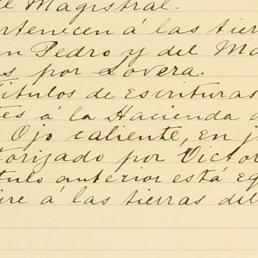 el Magistral.
rtenecen á las tier
an Pedro y del Ma
s por Lovera.
itulos de escrituras
tes á la Hacienda d
Ojo caliente, en j
torizado por Victor
tulo anterior está eq
ire á las tierras del